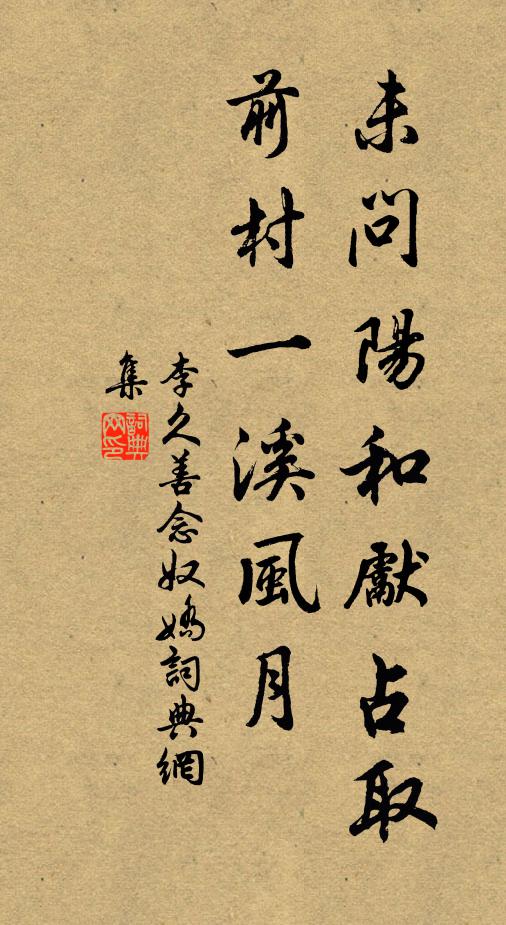 未問陽和獻占取
前村一溪風月
李久善念奴嬌詞典網
集
詞典
網印